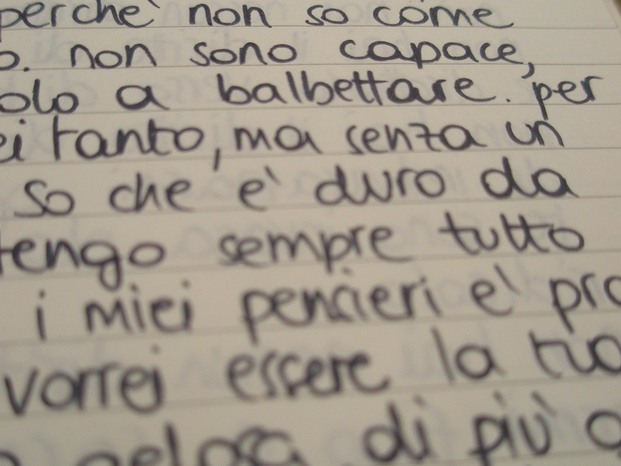 perchè non so come
o. non sono capace,
olo a balbettare. per
ei tanto, ma senza un
so che è duro da
tengo sempre tutto
i miei pensieri è pro
vorrei essere la tua
gelosa di più